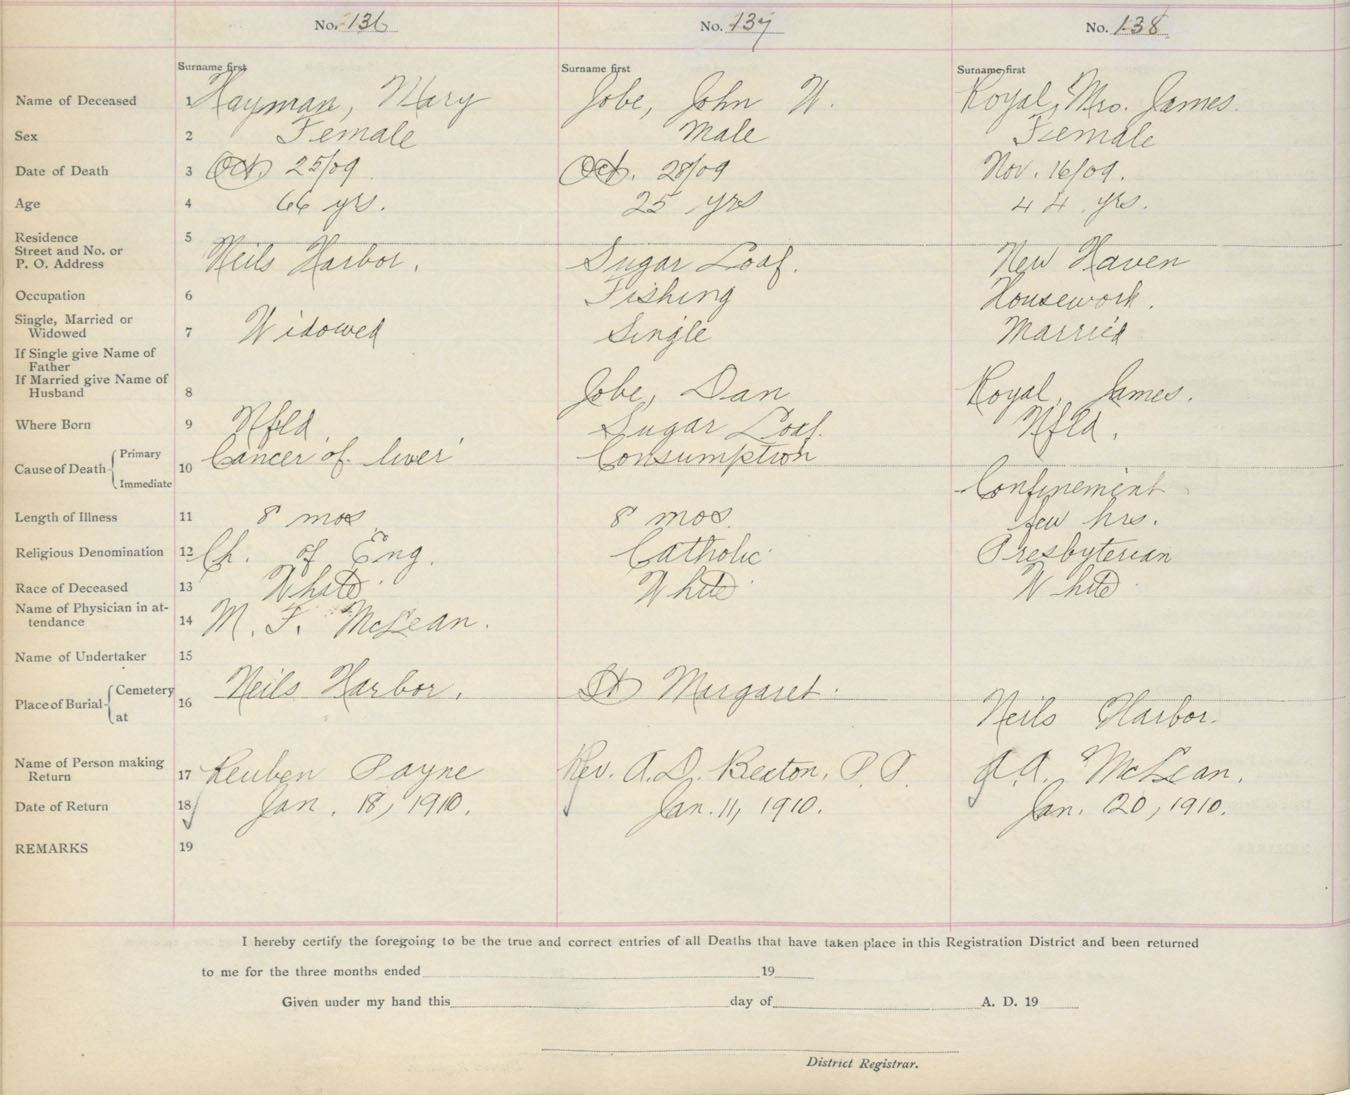 No. 136 No. 137 No. 138
Surname first Surname first Surname first
Name of Deceased 1 Hayman, Mary Jobe, John W. Royal, Mrs. James.
Sex 2 Female Male Female
Date of Death 3 Oct. 25/09 Oct. 28/09 Nov. 16/09.
Age 4 66 yrs. 25 yrs 44 yrs.
Residence 5
Street and No. or
P. O. Address Neils Harbor. Sugar Loaf. New Haven
Occupation 6 Fishing Housework.
Single, Married or
Widowed 7 Widowed Single Married
If Single give Name of
Father
If Married give Name of
Husband 8 Jobe, Dan Royal, James.
Where Born 9 Nfld. Sugar Loaf. Nfld.
Cause of Death Primary 10 Cancer of liver Consumption
Immediate Confinement
Length of Illness 11 8 mos. 8 mos. few hrs.
Religious Denomination 12 Ch. of Eng. Catholic Presbyterian
Race of Deceased 13 White White White
Name of Physician in at-
tendance 14 M. F. McLean.
Name of Undertaker 15
Place of Burial Cemetery 16 Neils Harbor. St Margaret.
at Neils Harbor.
Name of Person making
Return 17 Reuben Payne Rev. A.D. Beaton, P.P. A.A. McLean.
Date of Return 18 Jan. 18, 1910. Jan. 11, 1910. Jan. 20, 1910.
REMARKS 19
I hereby certify the foregoing to be the true and correct entries of all Deaths that have taken place in this Registration District and been returned
to me for the three months ended 19
Given under my hand this day of A. D. 19
District Registrar.